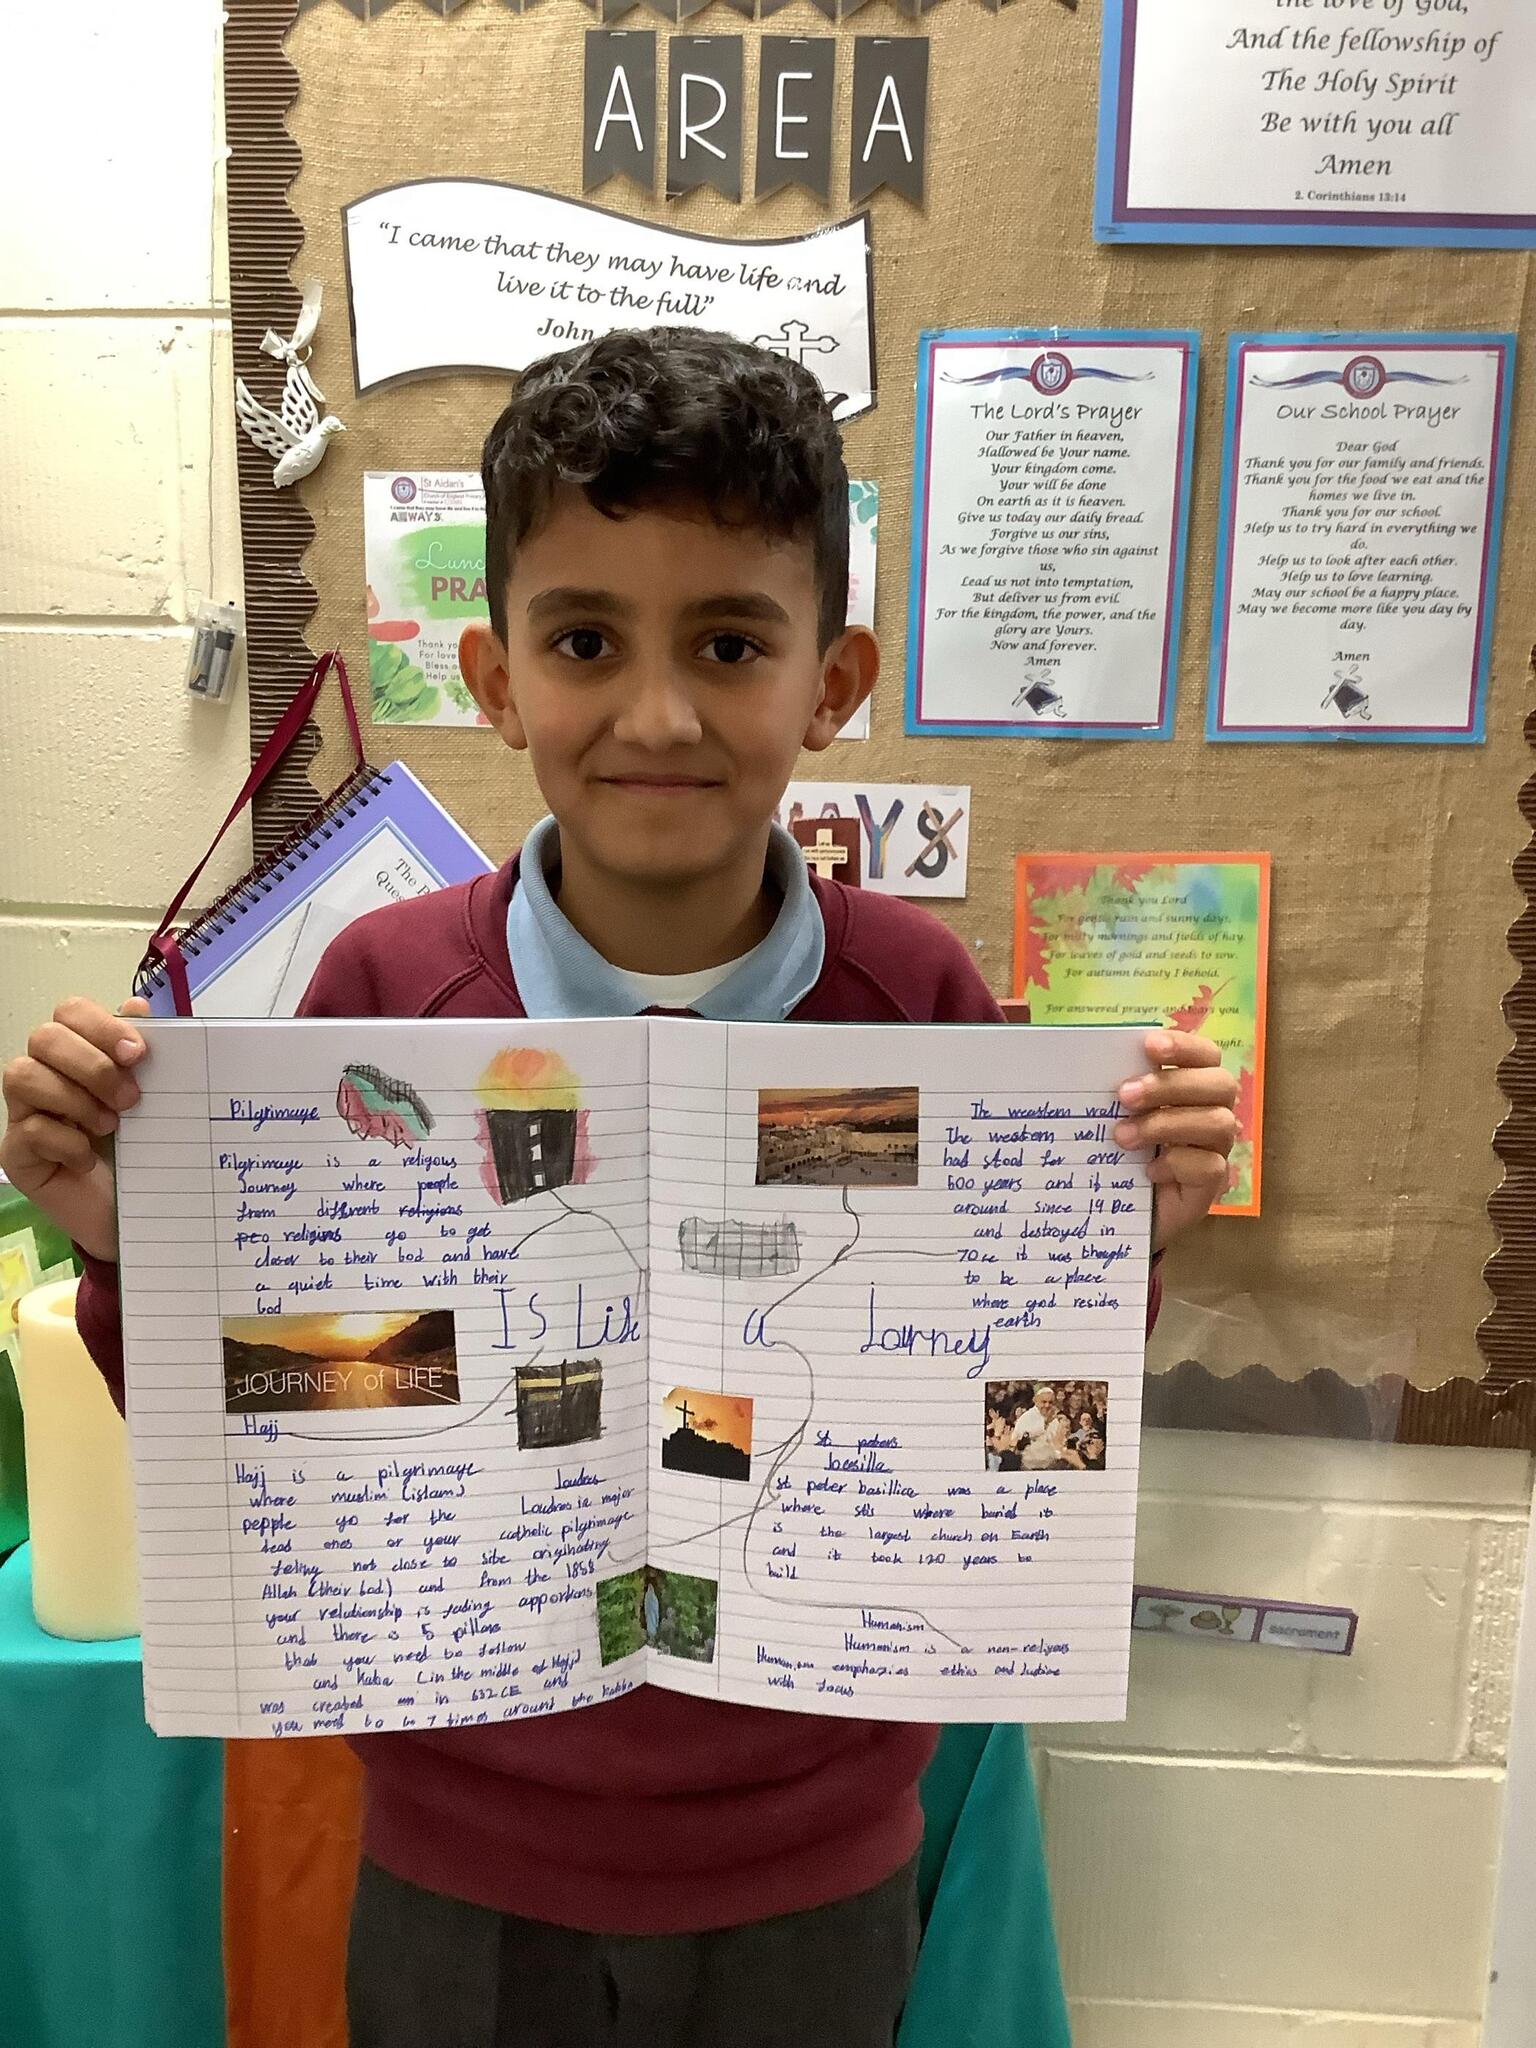 AREA
the love of God,
And the fellowship of
The Holy Spirit
Be with you all
Amen
2. Corinthians 13:14
“I came that they may have life and
live it to the full”
John
St Aidan's
Church of England Primary
The Lord's Prayer
Our Father in heaven,
Hallowed be Your name.
Your kingdom come.
Your will be done
On earth as it is heaven.
Give us today our daily bread.
Forgive us our sins,
As we forgive those who sin against
us,
Lead us not into temptation,
But deliver us from evil.
For the kingdom, the power, and the
glory are Yours.
Now and forever.
Amen
Our School Prayer
Dear God
Thank you for our family and friends.
Thank you for the food we eat and the
homes we live in.
Thank you for our school.
Help us to try hard in everything we
do.
Help us to look after each other.
Help us to love learning.
May our school be a happy place.
May we become more like you day by
day.
Amen
Thank you Lord
For gentle rain and sunny days,
For misty mornings and fields of hay.
For leaves of gold and seeds to sow.
For autumn beauty I behold.
For answered prayer and tears you
Pilgrimage
Pilgrimage is a religous
Journey where people
from different religions
peo religions go to get
closer to their God and have
a quiet time with their
God
Is Life a Jorney
JOURNEY of LIFE
Hajj
Hajj is a pilgrimage
where muslim (islam)
people go for the
dead ones or your
feling not close to
Allah (their God) and
your relationship is fading
and there is 5 pillars
that you need to follow
and Kaba (in the middle of Hajj)
was created in 632 CE and
you need to go 7 times around the kabba
Loudres
Loudres is a major
catholic pilgrimage
site originating
from the 1858
apportions
The weastern wall
The western wall
had stood for over
600 years and it was
around since 19 Bce
and destroyed in
70ce it was thought
to be a place
where god resides
earth
St peters
St peter basillica was a place
where sts where buried it
is the largest church on Earth
and it took 120 years to
build
Humanism
Humanism is a non-religous
Humanism emphazies ethics and Justice
with focus
sacrament